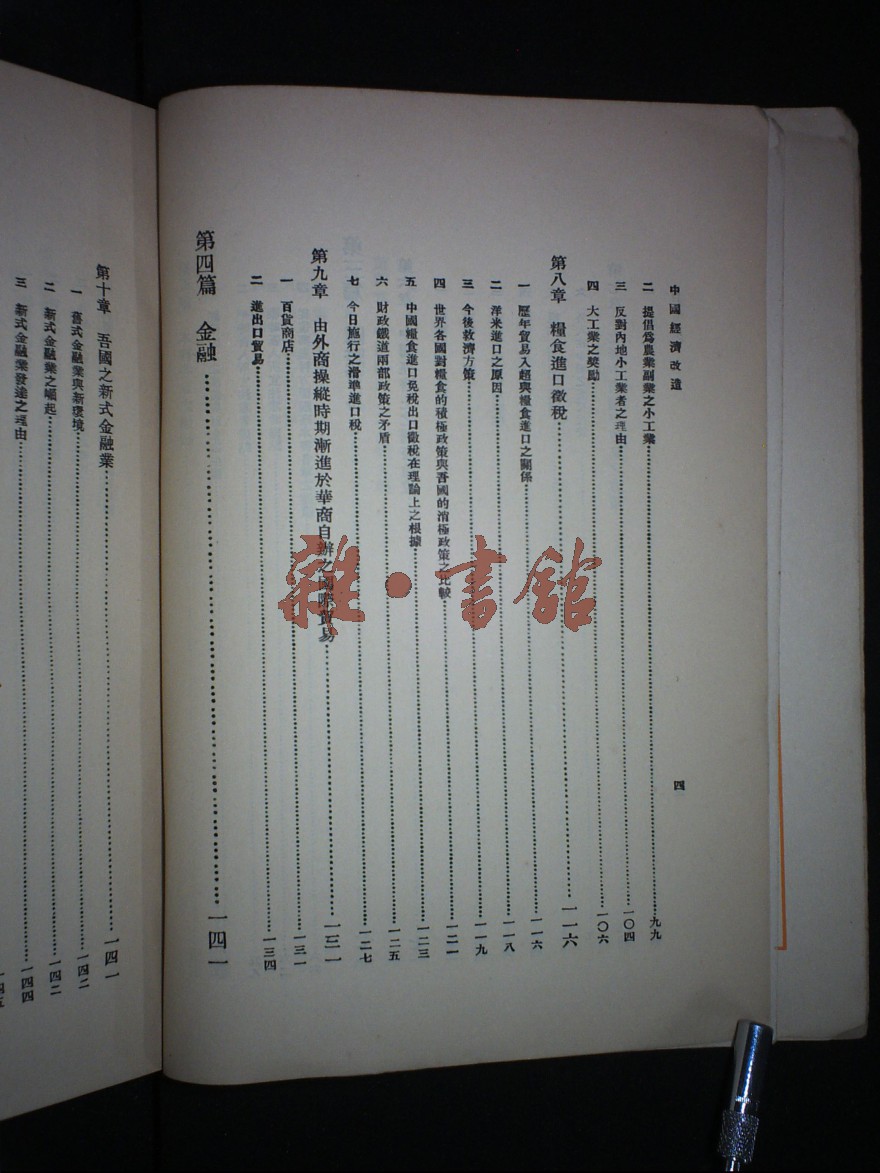 中國經濟改造
四
二 提倡爲農業副業之小工業 九九
三 反對內地小工業者之理由 一〇四
四 大工業之獎勵 一〇六
第八章 糧食進口徵稅 一一六
一 歷年貿易入超與糧食進口之關係 一一六
二 洋米進口之原因 一一八
三 今後救濟方策 一一九
四 世界各國對糧食的積極政策與吾國的消極政策之比較 一二一
五 中國糧食進口免稅出口徵稅在理論上之根據 一二三
六 財政鐵道兩部政策之矛盾 一二五
七 今日施行之滑準進口稅 一二七
第九章 由外商操縱時期漸進於華商自辦之國際貿易 一三一
一 百貨商店 一三一
二 進出口貿易 一三四
第四篇 金融 一四一
第十章 吾國之新式金融業 一四一
一 舊式金融業與新環境 一四二
二 新式金融業之崛起 一四二
三 新式金融業發達之理由 一四四
一四五
雜·書館